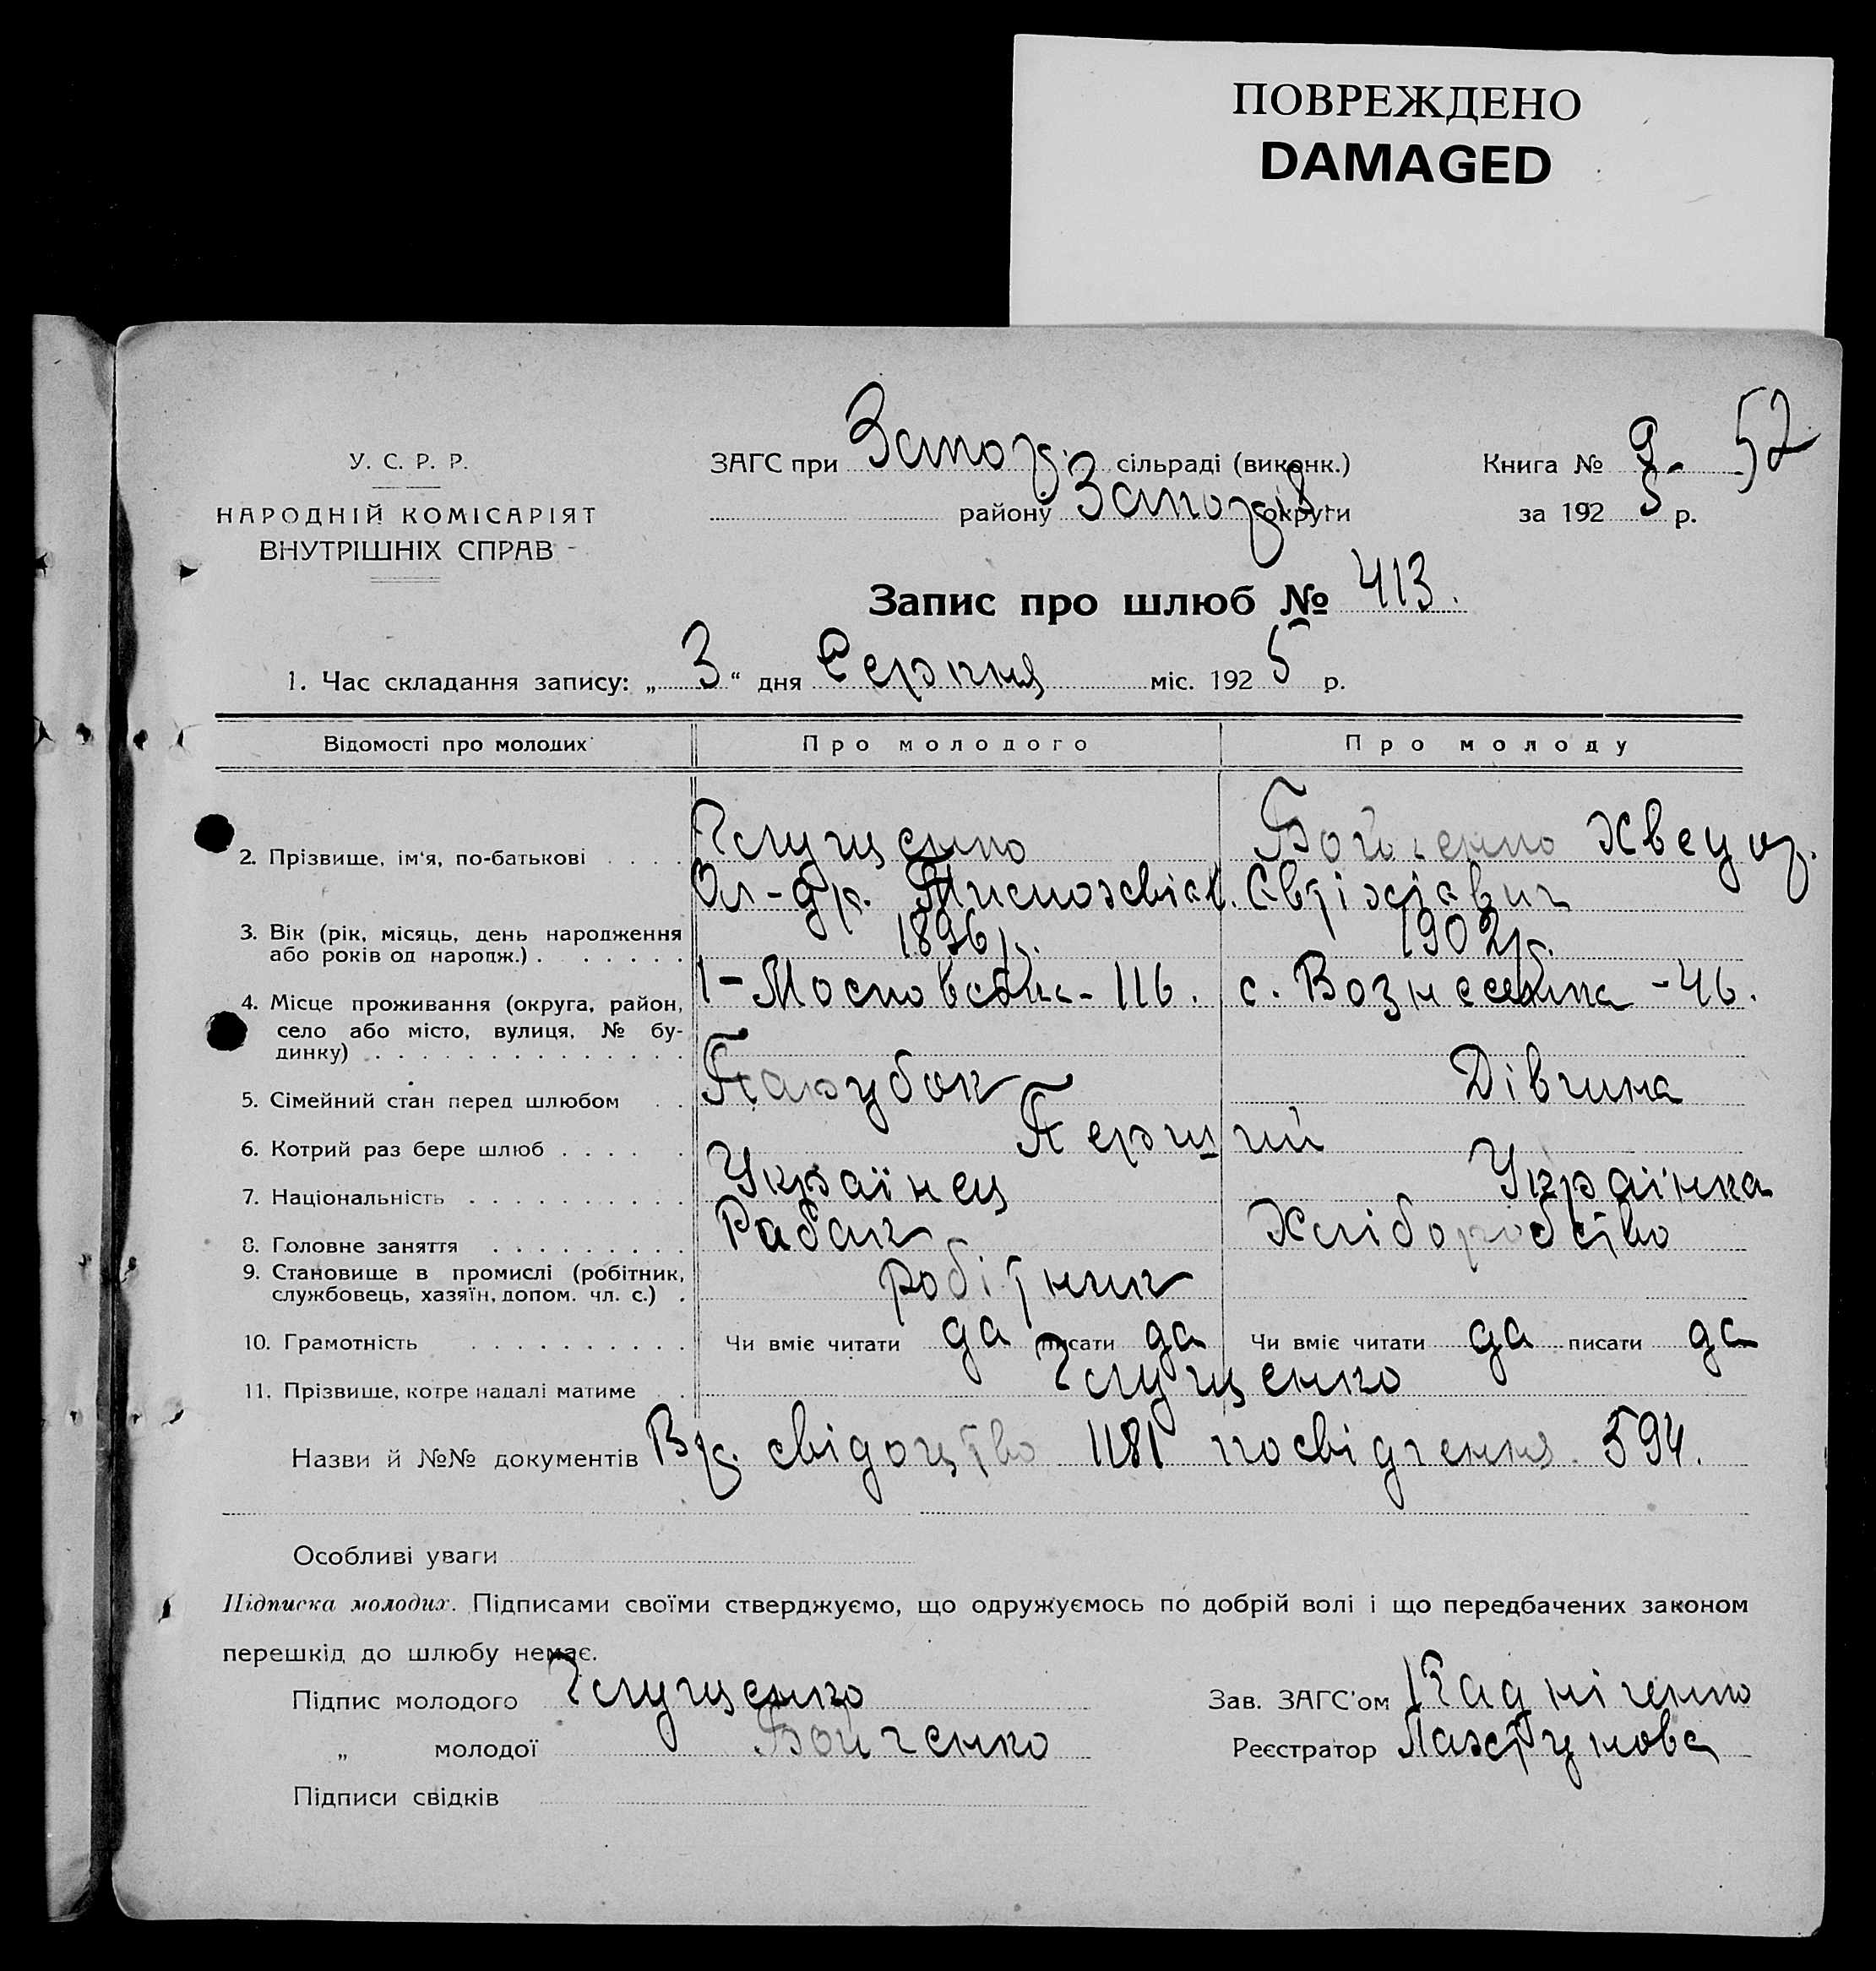 ПОВРЕЖДЕНО
DAMAGED
52
У. С. Р. Р.
НАРОДНІЙ КОМІСАРІЯТ
ВНУТРІШНІХ СПРАВ
ЗАГС при Запор. сільраді (виконк.)
району Запоріз округи
Книга № 9-
за 1925 р.
Запис про шлюб № 413.
1. Час складання запису: „3“ дня Серпня міс. 1925 р.
Відомості про молодих Про молодого Про молоду
2. Прізвище, ім'я, по-батькові . . . . Глущенко Бойченко Хведор.
Ол-др. Тимохвієв. Євтіхієвич
3. Вік (рік, місяць, день народження 1896р. 1902р.
або років од народж.) . . . . . .
4. Місце проживання (округа, район, 1-Московська-116. с. Вознесенка-46.
село або місто, вулиця, № бу-
динку) . . . . . . . . . . . . . .
5. Сімейний стан перед шлюбом . . Парубок Дівчина
6. Котрий раз бере шлюб . . . . . Перший
7. Національність . . . . . . . . . Українец Українка
8. Головне заняття . . . . . . . . . Хліборобство
9. Становище в промислі (робітник, робітник
службовець, хазяїн, допом. чл. с.) .
10. Грамотність . . . . . . . . . . Чи вміє читати да писати да Чи вміє читати да писати да
11. Прізвище, котре надалі матиме . . Глущенко
Назви й №№ документів Вр. свідоцтво 1181 посвідчення 594.
Особливі уваги
Підписка молодих. Підписами своїми стверджуємо, що одружуємось по добрій волі і що передбачених законом
перешкід до шлюбу немає.
Підпис молодого Глущенко
„ молодої Бойченко
Підписи свідків
Зав. ЗАГС'ом
Реєстратор